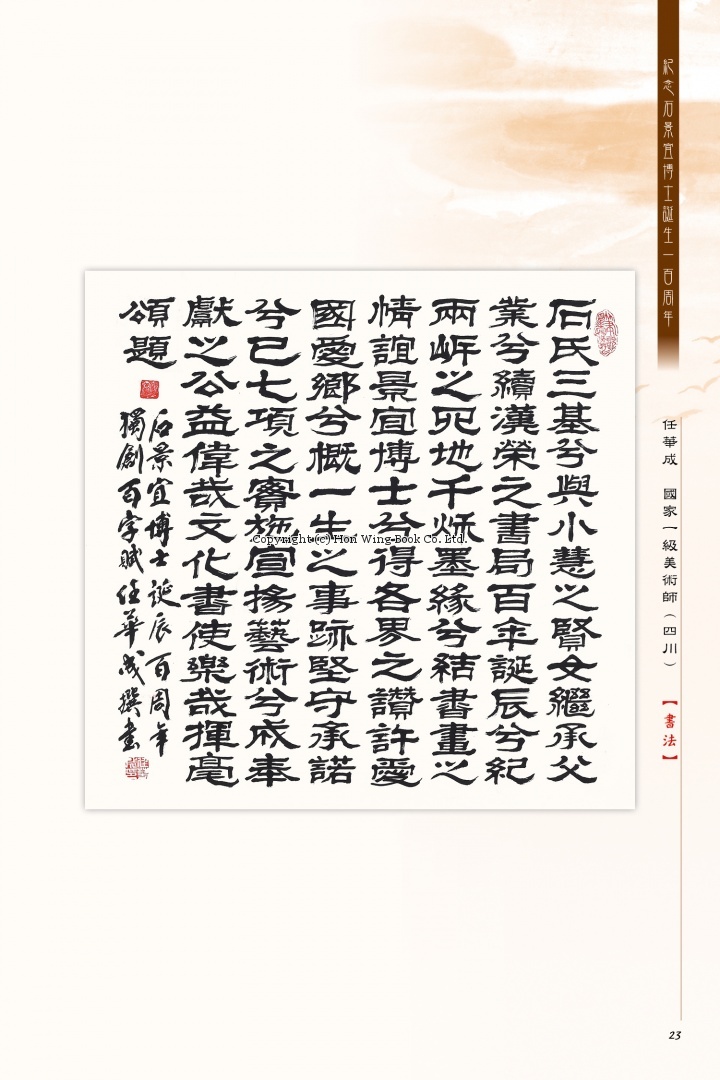 紀念石景宜博士誕生一百周年
任華成 國家一級美術師（四川）
【書法】
石氏三基兮與小慧之賢女繼承父
業兮續漢榮之書局百年誕辰兮紀
兩岸之四地千秋墨緣兮結書畫之
情誼景宜博士兮得各界之讚許愛
國愛鄉兮概一生之事跡堅守承諾
兮已七項之實施宣揚藝術兮成奉
獻之公益偉哉文化書使樂哉揮毫
頌題
石景宜博士誕辰百周年
獨創百字賦任華成撰書
Copyright (c) Hon Wing Book Co. Ltd.
23